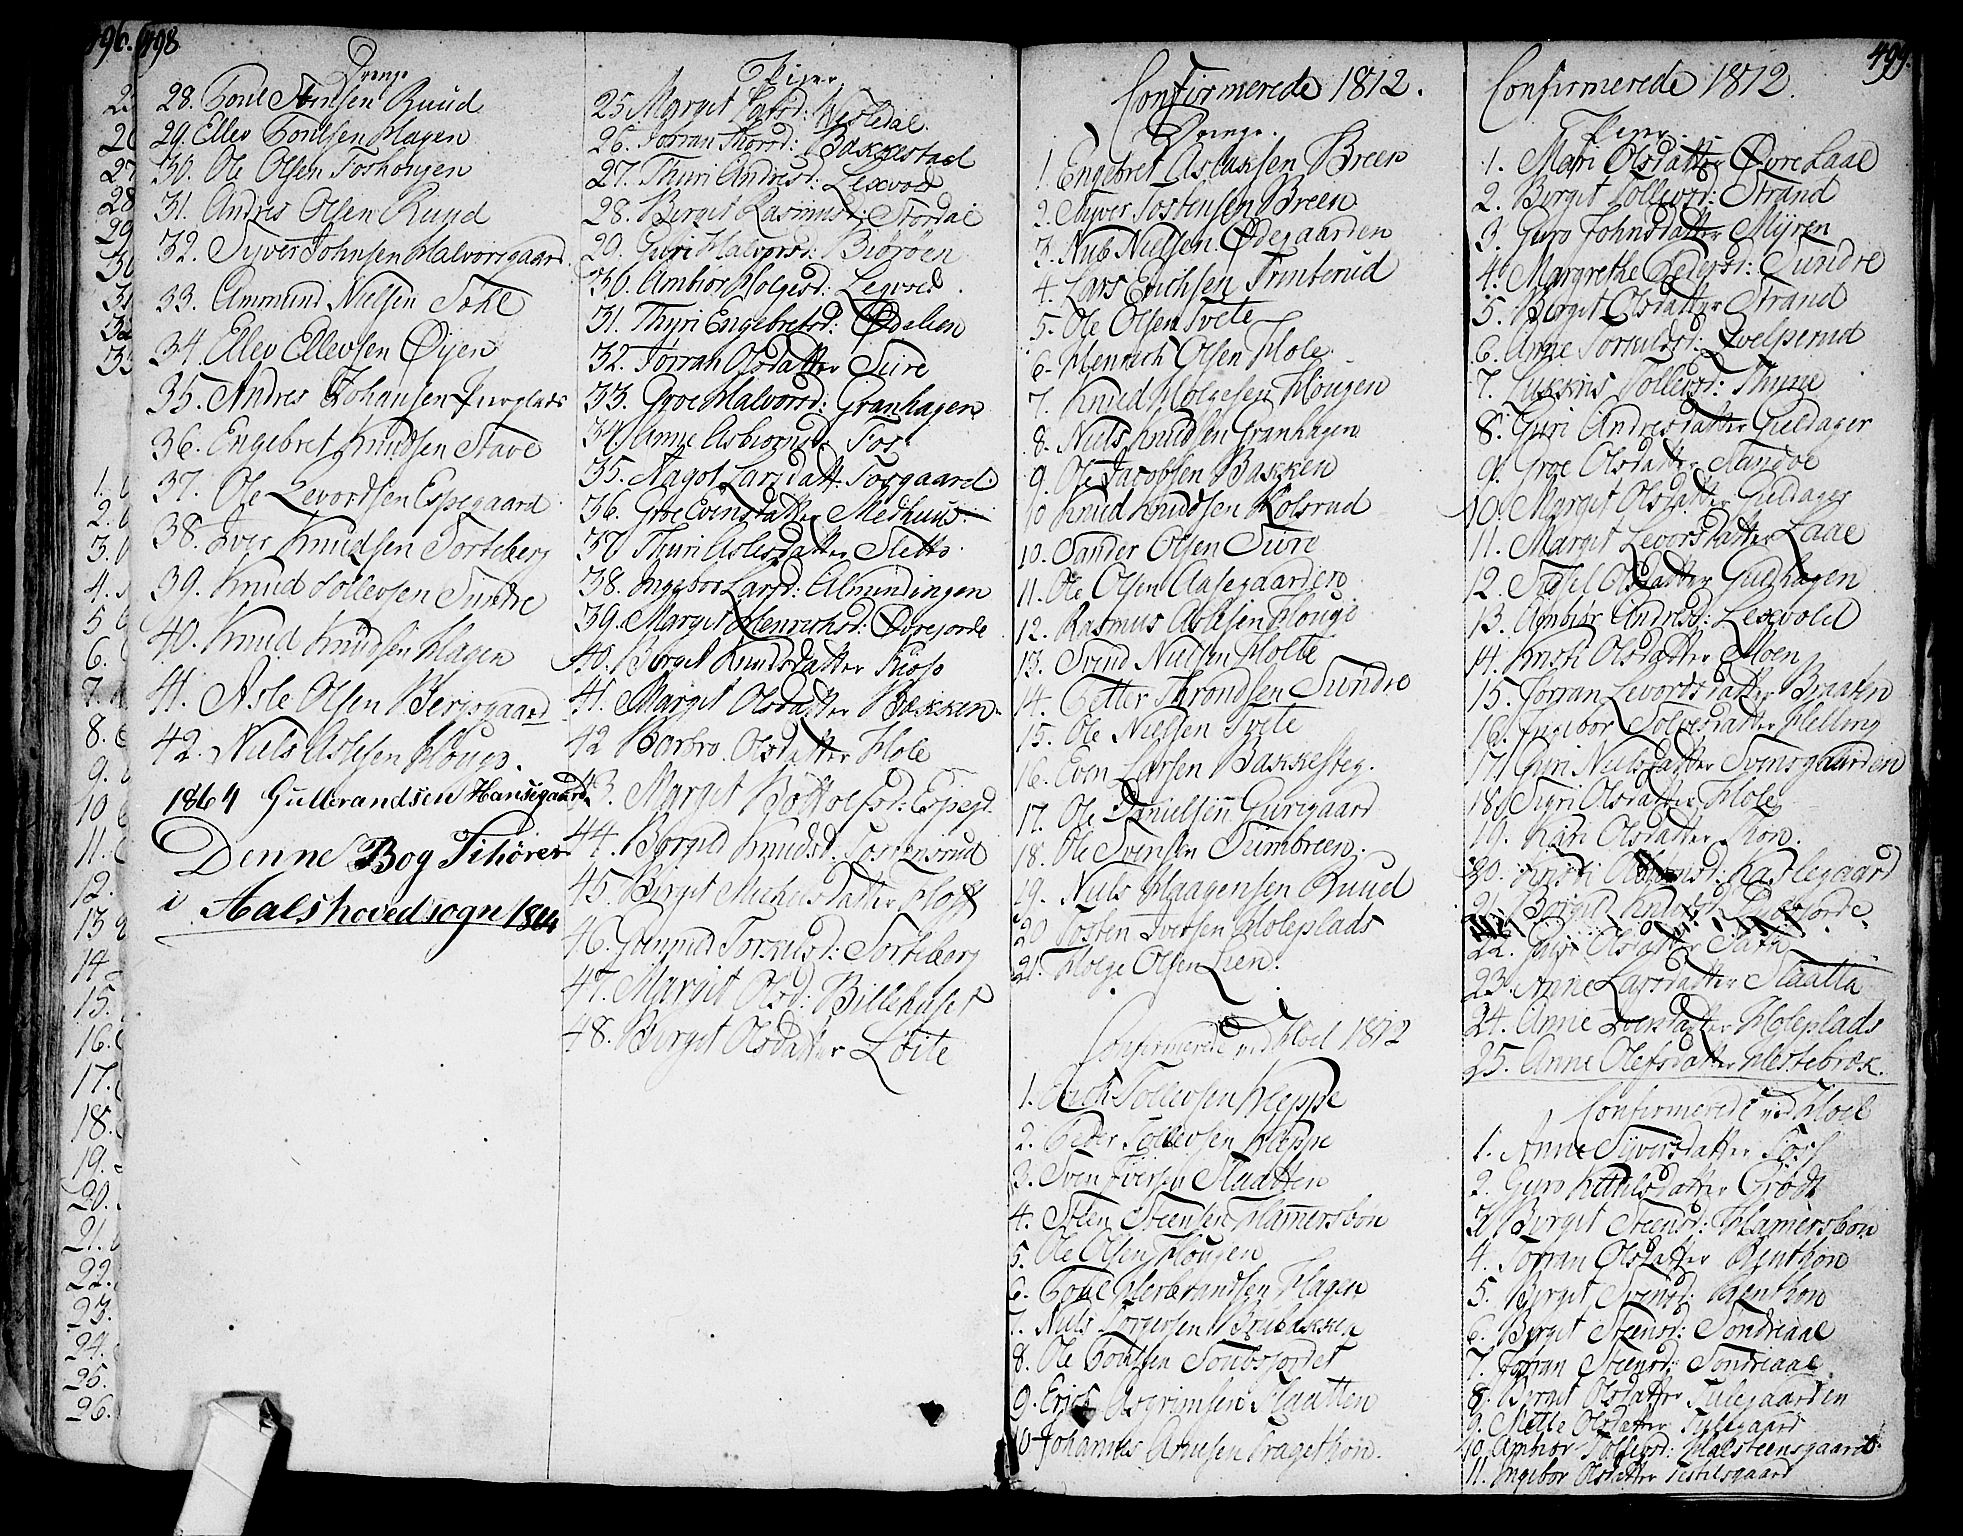 498
Drenge
28. Poul Andsen Ruud
29. Ellev Poulsen Hagen
30. Ole Olsen Torhougen
31. Andres Olsen Ruud
32. Syver Johnsen Halvorsgaard
33. Ammund Nielsen Sohl
34. Ellev Ellevsen Øÿen
35. Andres Johansen
36. Engebret Knudsen Stave
37. Ole Levordsen Espegaard
38. Iver Knudsen Torteberg
39. Knud Tollevsen Sundre
40. Knud Knudsen Hagen
41. Asle Olsen Bergsgaard
42. Niels Aslesen Houge.
1864 Gulbrandsen Hansegaard
Denne Bog Tihører
i Aals hovedsogn 1864
Piger
25 Margit Larsd: Westedal.
26. Jorran Thorsd: Bakkestad
27. Thuri Andresd: Lexvold
28. Birgit Rasmusd: Tordal
29. Guri Halvorsd: Biøröen
30. Ambiør Holgesd: Lexvold.
31. Thyri Engebretsd: Ødelien
32. Jørran Olsdatter Suire
33. Groe Halvorsd: Granhagen
34. Anne Asbiørnsd: Tor
35. Nagot Larsdatt: Torgaard.
36. Groe Evensdatter Medhuus.
37. Thuri Aslesdatter Sletto.
38. Ingebor Larsd: Almindingen
39. Margit Henrichsd: Øvrejorde
40. Birget Knudsdatter Kios
41. Margit Olsdatter Bakken.
42 Barbro Olsdatter Hole
43. Margit Bottolfsd: Espegd.
44. Borgild Knudsd. Torstensrud
45. Birgit Michelsdatter Hoff
46. Gunnild Torkilsd: Torteberg
47. Margit Olsd: Billehuset
48. Birgit Olsdatter Löite
499.
Confirmerede 1812.
Drenge.
1. Engebret Aslaksen Breen
2. Syver Tostensen Breen
3. Nub Nielsen Ødegaarden
4. Lars Erichsen Trinterud
5. Ole Olsen Tvete
6. Henrich Olsen Hole.
7. Knud Holgesen Hougen
8. Niels Knudsen Granhagen
9. Ole Jacobsen Bakken
10 Knud Knudsen Kolsrud
10. Sander Olsen Suire
11. Ole Olsen Aasegaarden
12. Rasmus Aslesen Houge
13. Svend Nielsen Holte
14. Petter Throndsen Sundre
15. Ole Nielsen Tvete
16. Even Larsen Bakkesteg.
17. Ole Danielsen Gurigaard
18. Ole Svensen Sumbreen.
19. Niels Haagensen Ruud
20 Tosten Iversen Holeplads
21. Holge Olsen Lien.
Confirmerede ved Hoel 1812
1. Erich Tollevsen Kleppe
2. Peder Tollevsen Kleppe
3. Sven Iversen Slaatten
4. Steen Steensen Hamersbon
5. Ole Olsen Hougen
6. Poul Herbrandsen Hagen
7. Niels Torgersen Brubakken
8. Ole Poulsen
9. Erich Asgrimsen Slaatten
10 Johannes Arnesen Tragethon.
Confirmerede 1812.
Piger.
1. Mari Olsdatter Øvre Laae
2. Birgit Tollevsd: Strand
3. Guro Johnsdatter Mÿren
4. Margrethe Pedersd: Sundre
5. Birgit Olsdatter Strand
6. Anne Torkildsd: Qvelperud
7. Lukkris Tollevsd: Thune
8. Guri Andresdatter Guldager
9. Groe Olsdatter Sandoe
10. Margit Olsdatter Guldager
11. Margit Levorsdatter Laae
12. Sidsel Olsdatter Gudhagen
13. Ambiör Andresd: Lexvold
14. Kristi Olsdatter Moen
15. Jorran Levordsdatter Braaten
16. Ingebor Solvesdatter Helling
17. Guri Nielsdatter Svensgaarden
18. Sigri Olsdatter Hole
19. Kari Olsdatter Kon.
20. Kristi Karlegaard
21. Borgild Knudsd:
22. Guri Olsdatter
23. Anne Larsdatter Slaatta
24. Anne Iversdatter Holeplads
25. Anne Olefsdatter Hestebrek.
Confirmerede ved Hoel
1. Anne Syversdatter Tors
2. Guro Kittilsdatter Grödt
3. Birget Steensd: Hamersbon
4. Jorran Olsdatter Benthon
5. Birgit Svensd: Benthon
6. Birgit Steensd: Sondreaal
7. Jorran Steensd: Sondreaal.
8. Birgit Olsdatter Tulegaarden
9. Mette Olsdatter Tullegaard
10. Ambior Tollevsd: Halsteensgaard.
11. Ingebor Olsdatter Kittilsgaard